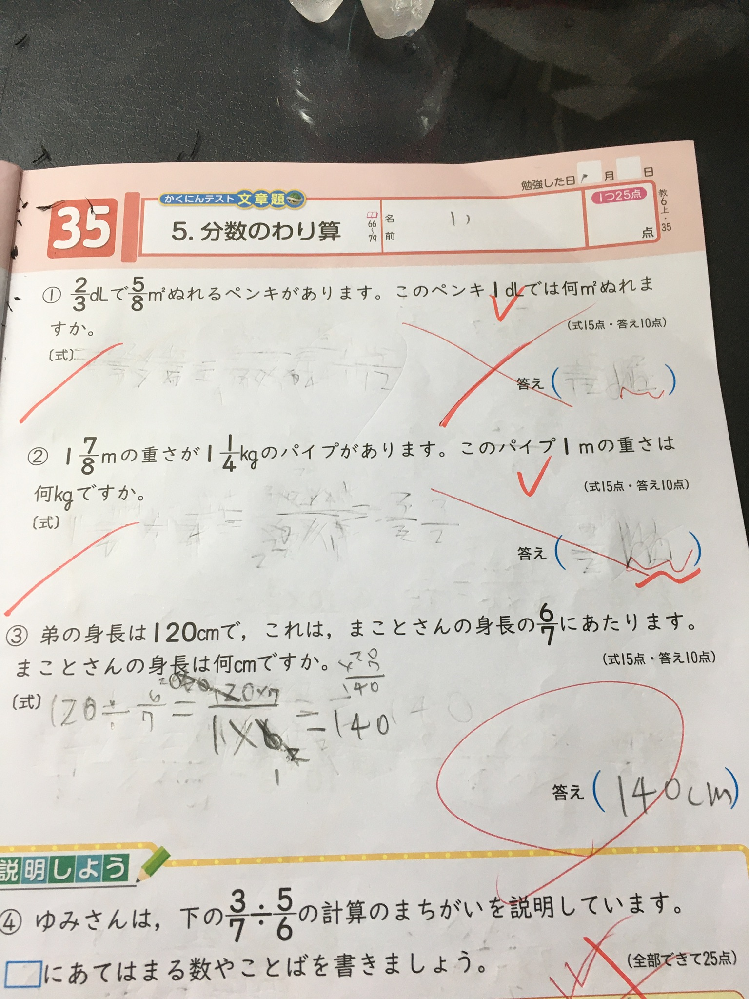 勉強した日 月 日
35
かくにんテスト 文章題
5. 分数のわり算
66~79
名前
1つ25点
点
教6上・35
① 2/3dLで5/8㎡ぬれるペンキがあります。このペンキ1dLでは何㎡ぬれま
すか。
(式15点・答え10点)
〔式〕
答え( )
② 1 7/8mの重さが1 1/4kgのパイプがあります。このパイプ1mの重さは
何kgですか。
(式15点・答え10点)
〔式〕
答え( )
③ 弟の身長は120cmで,これは,まことさんの身長の6/7にあたります。
まことさんの身長は何cmですか。
(式15点・答え10点)
〔式〕 120÷6/7=120×7/1×6=140
答え(140cm)
説明しよう
④ ゆみさんは,下の3/7÷5/6の計算のまちがいを説明しています。
□にあてはまる数やことばを書きましょう。
(全部できて25点)